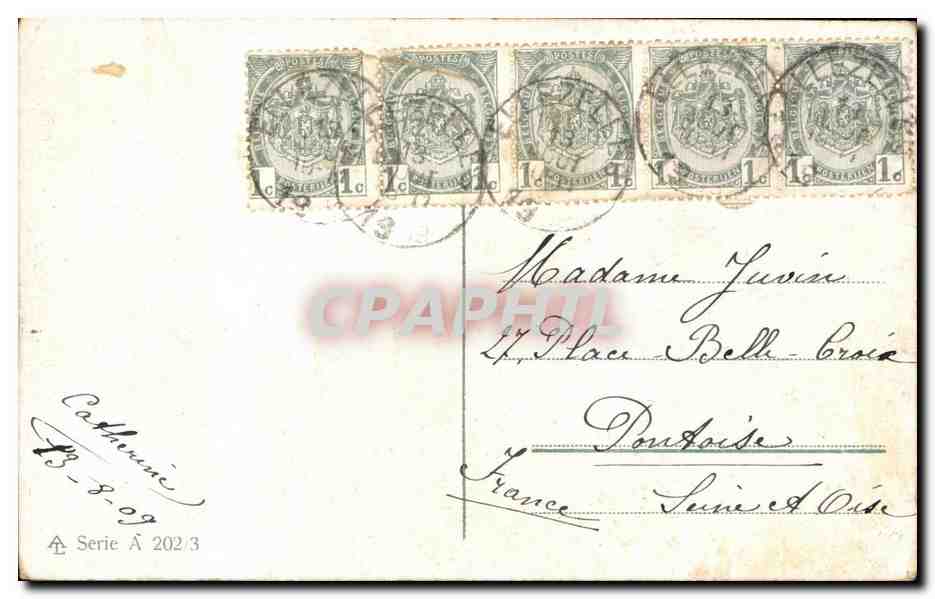 POSTES POSTES POSTES POSTES POSTES
POSTERIJEN POSTERIJEN POSTERIJEN POSTERIJEN POSTERIJEN
1c 1c 1c 1c 1c 1c 1c 1c 1c 1c
CPAPHIL
Madame Juvin
27, Place - Belle - Croix
Pontoise
France
Seine & Oise
Catherine
13-8-09
Serie A 202/3